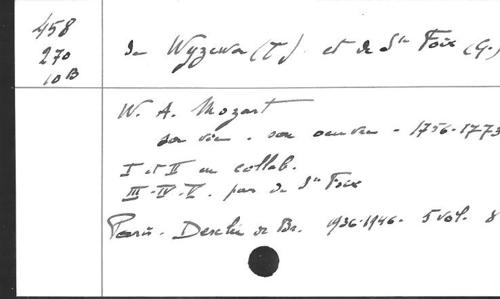 458
270
10B
de Wyzewa (T). et de Ste Foix (G.)
W. A. Mozart
sa vie - son oeuvre - 1756-1773
I et II en collab.
III-IV-V. par de Ste Foix
Paris - Desclée de Br. 1936-1946 - 5 vol. 8